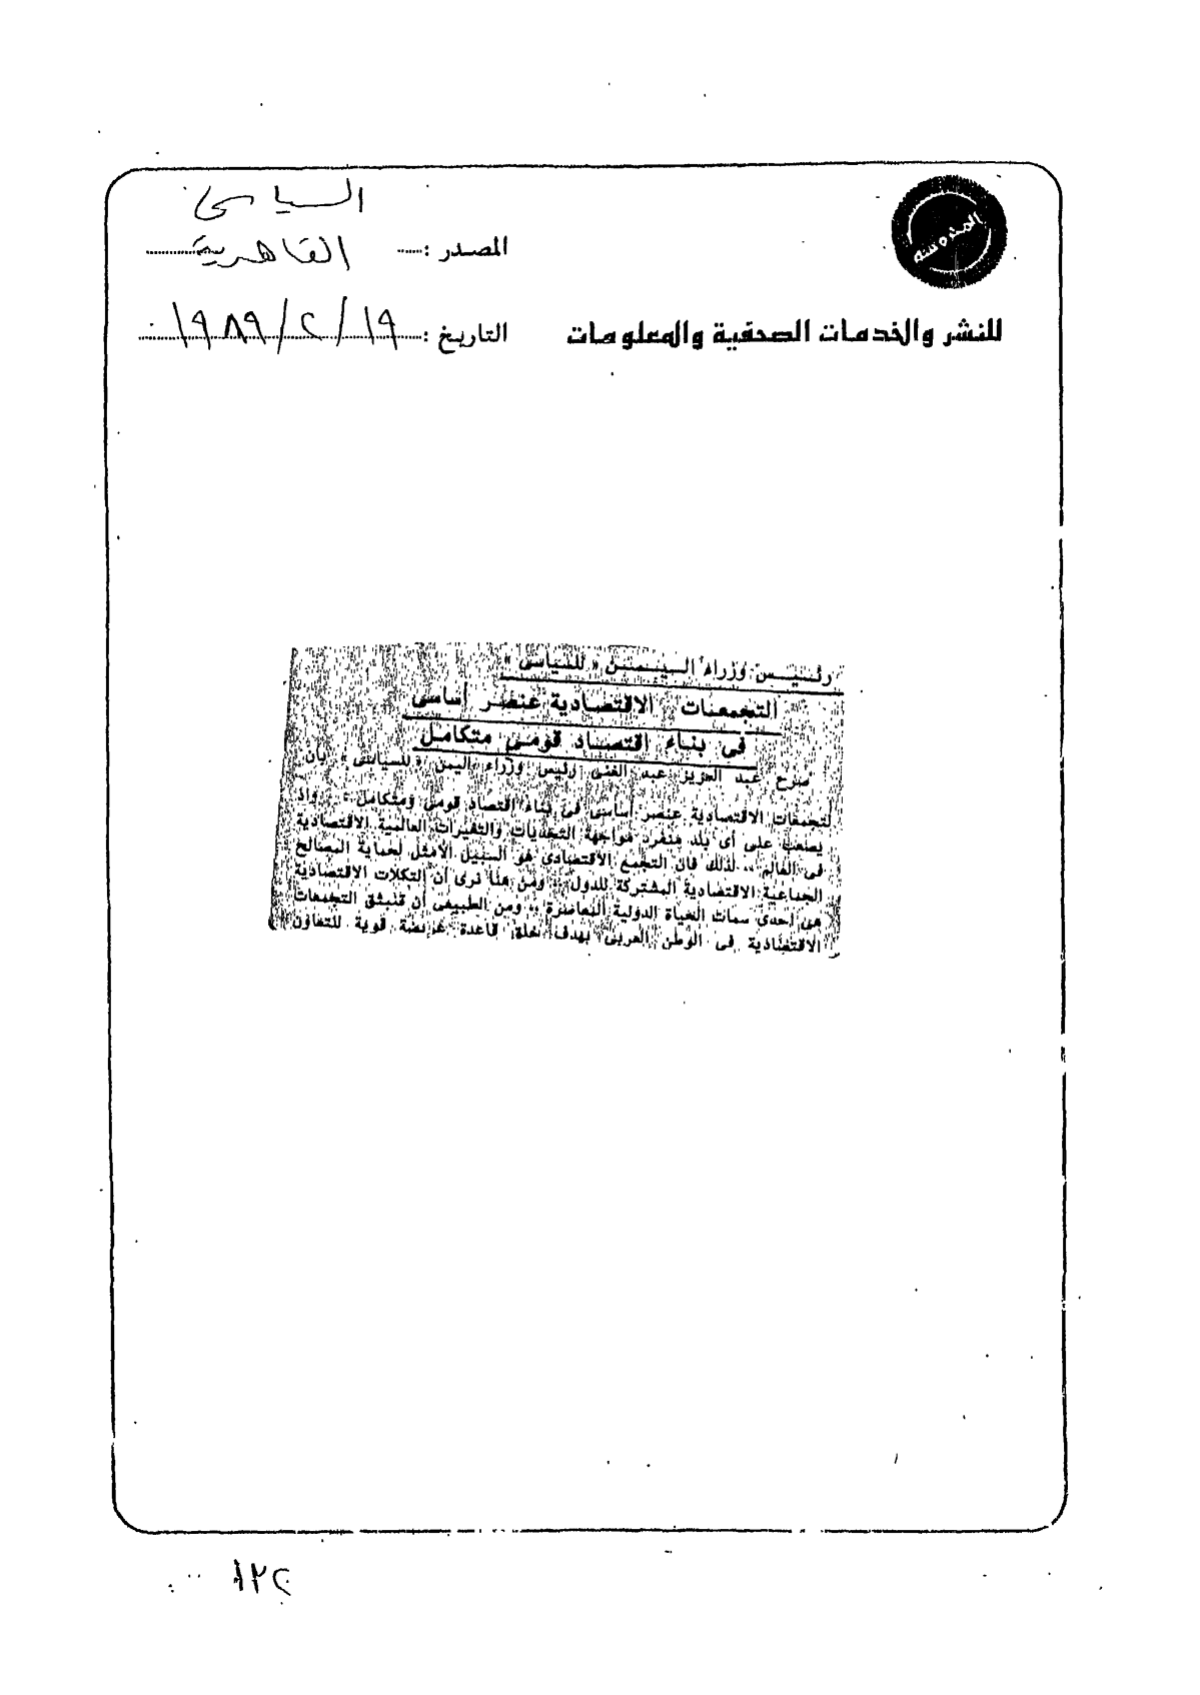 السياسى
المصدر : القاهرية
المحروسة
للنشر والخدمات الصحفية والمعلومات
التاريخ : ١٩/٢/١٩٨٩
رئيس وزراء اليمن « للسياسى »
التجمعات الاقتصادية عنصر أساسى
فى بناء اقتصاد قومى متكامل
صرح عبد العزيز عبد الغنى رئيس وزراء اليمن « للسياسى » بأن
لتجمعات الاقتصادية عنصر أساسى فى بناء اقتصاد قومى ومتكامل .. واد
يصعب على أى بلد منفرد مواجهة التحديات والتغيرات العالمية الاقتصادية
فى العالم .. لذلك فان التجمع الاقتصادى هو السبيل الأمثل لحماية المصالح
الجماعية الاقتصادية المشتركة للدول .. ومن هنا نرى أن التكلات الاقتصادية
هى احدى سمات الحياة الدولية المعاصرة .. ومن الطبيعى أن تنبثق التجمعات
الاقتصادية فى الوطن العربى بهدف خلق قاعدة عريضة قوية للتعاون